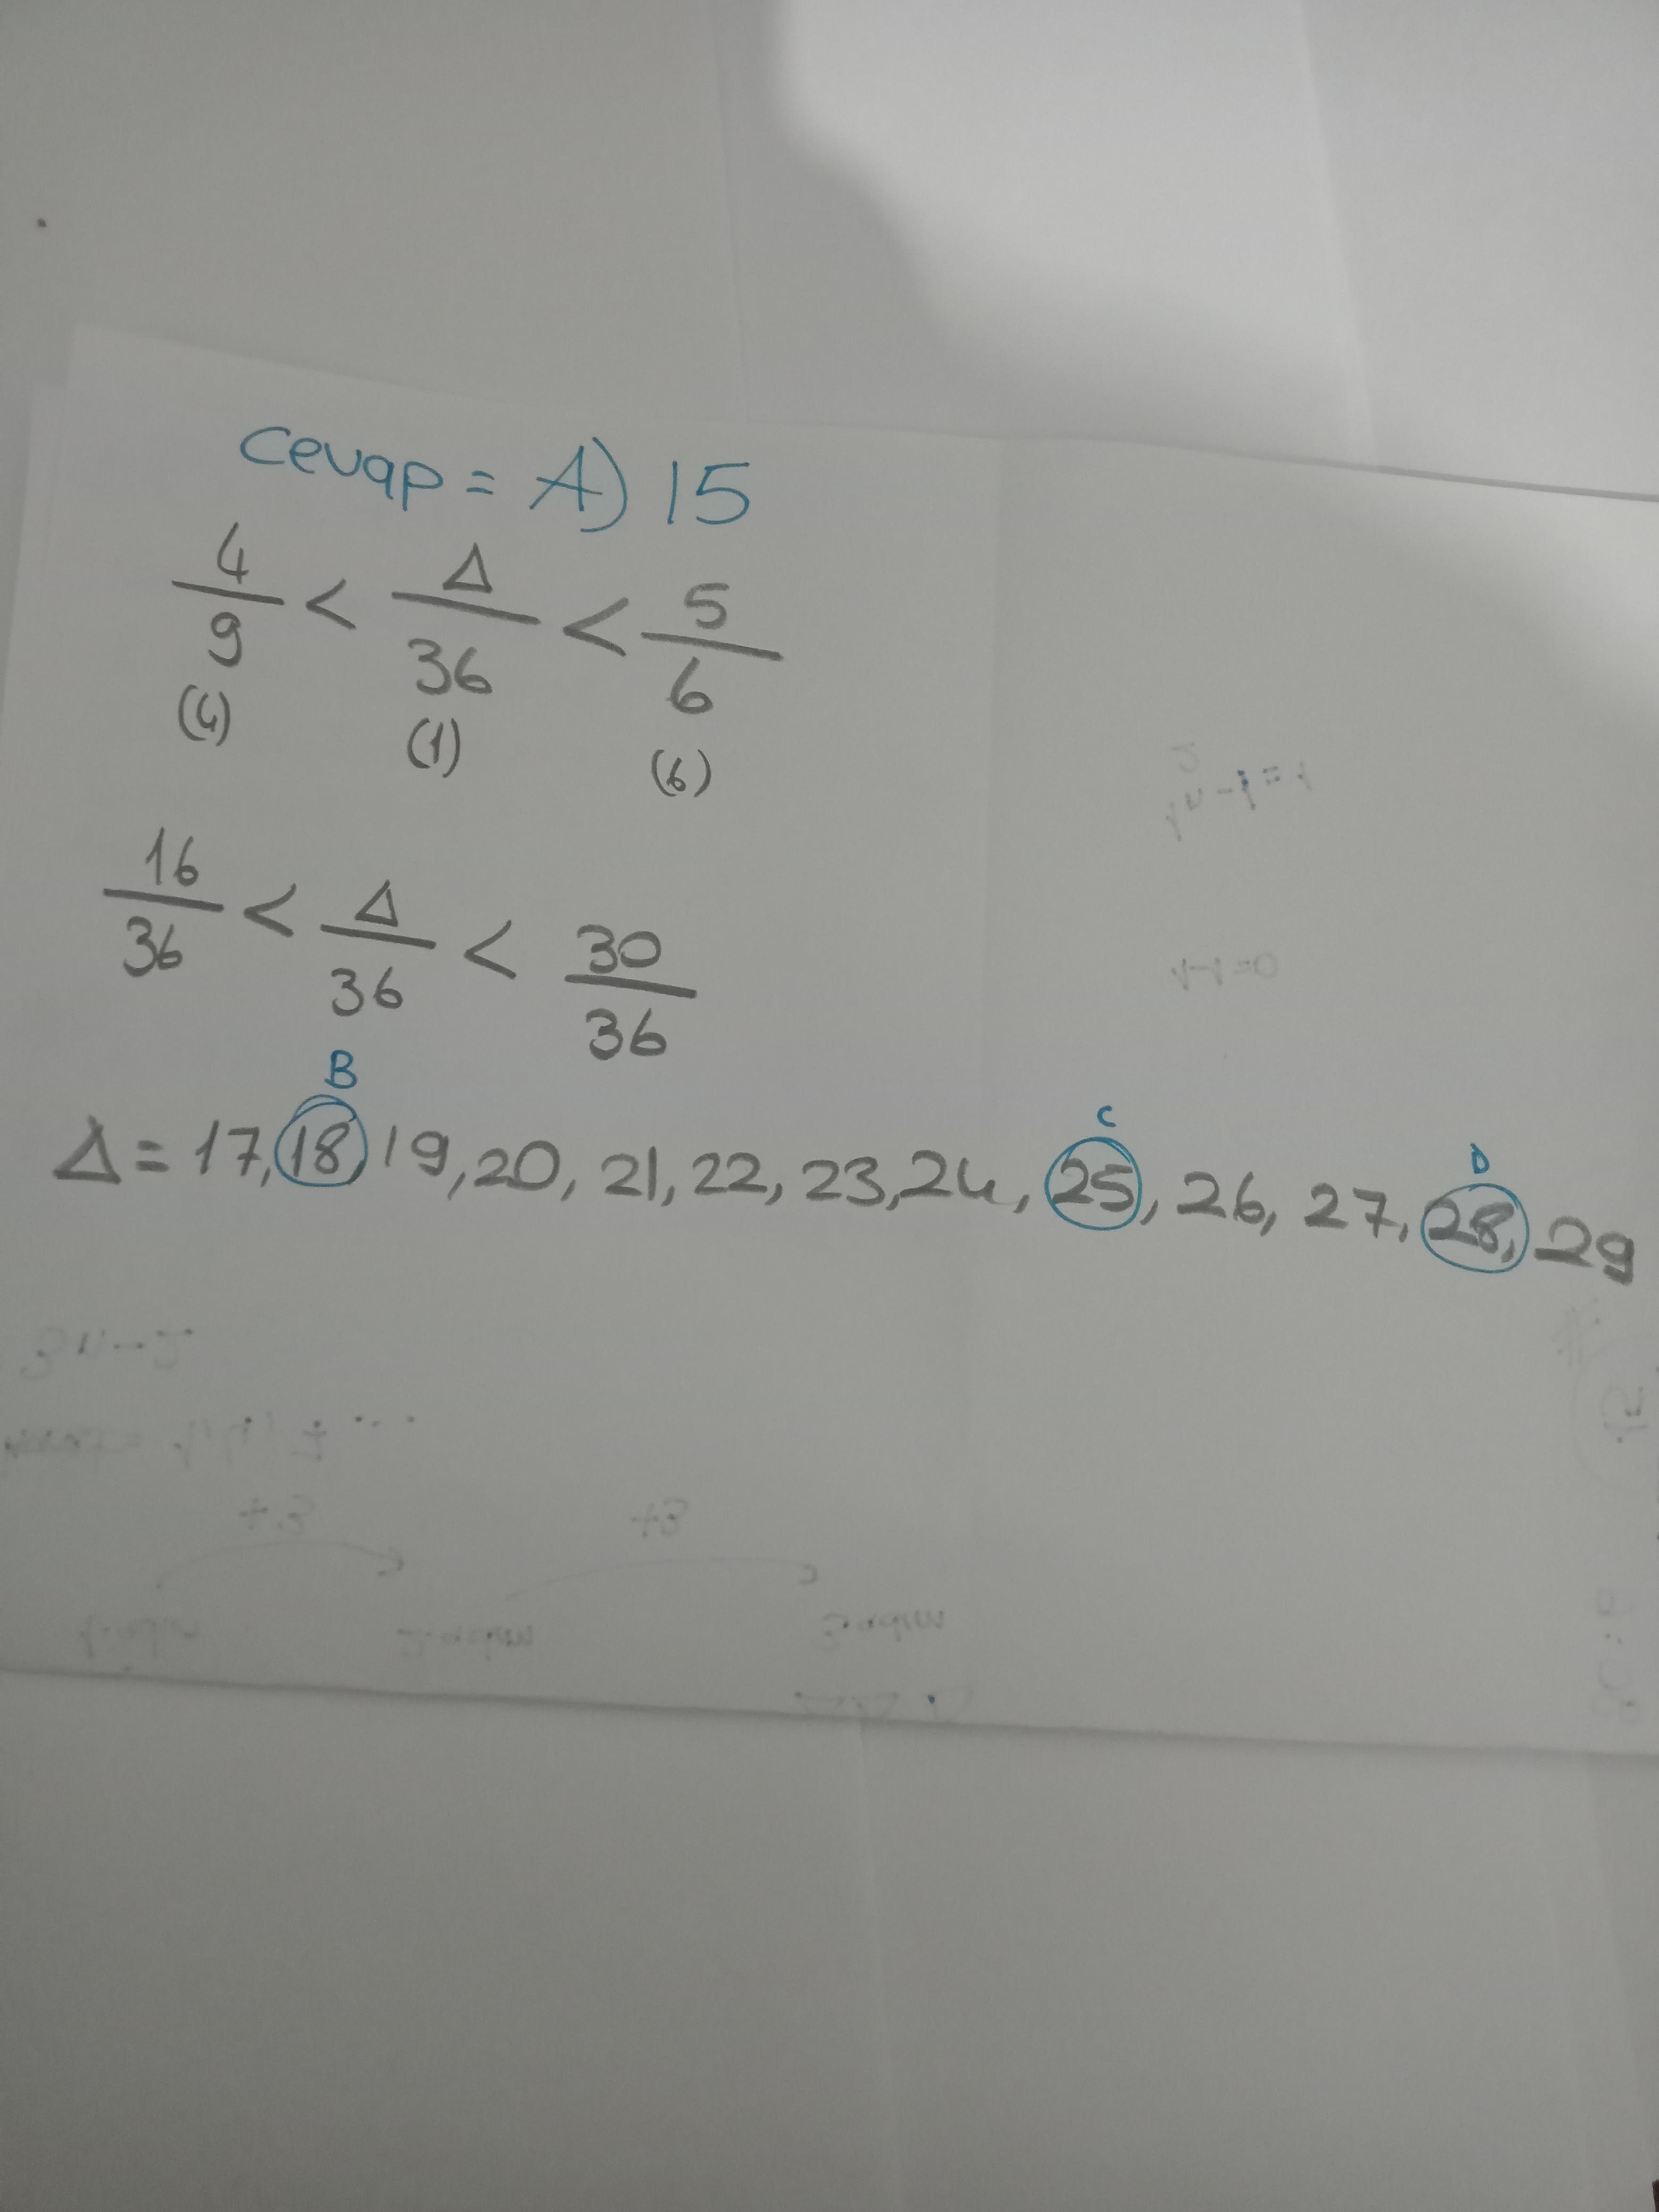 Cevap = A) 15
4/9 < Δ/36 < 5/6
(4) (1) (6)
16/36 < Δ/36 < 30/36
B C D
Δ = 17, 18, 19, 20, 21, 22, 23, 24, 25, 26, 27, 28, 29